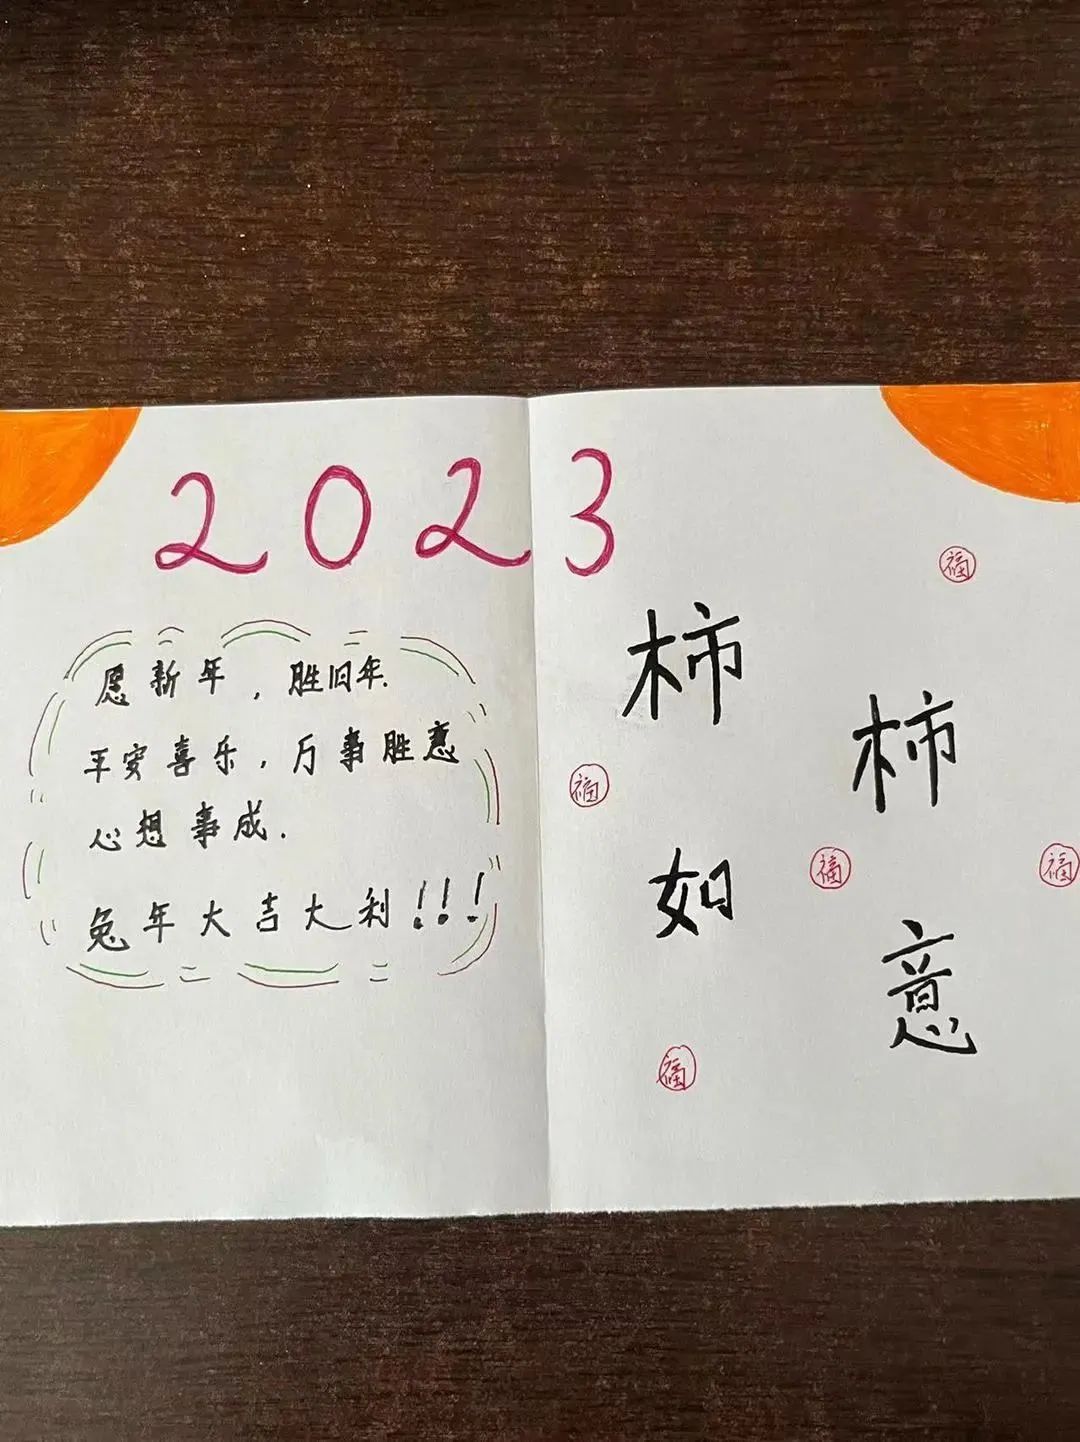 2023
愿新年，胜旧年.
平安喜乐，万事胜意
心想事成.
兔年大吉大利!!!
柿柿如意
福
福
福
福
福